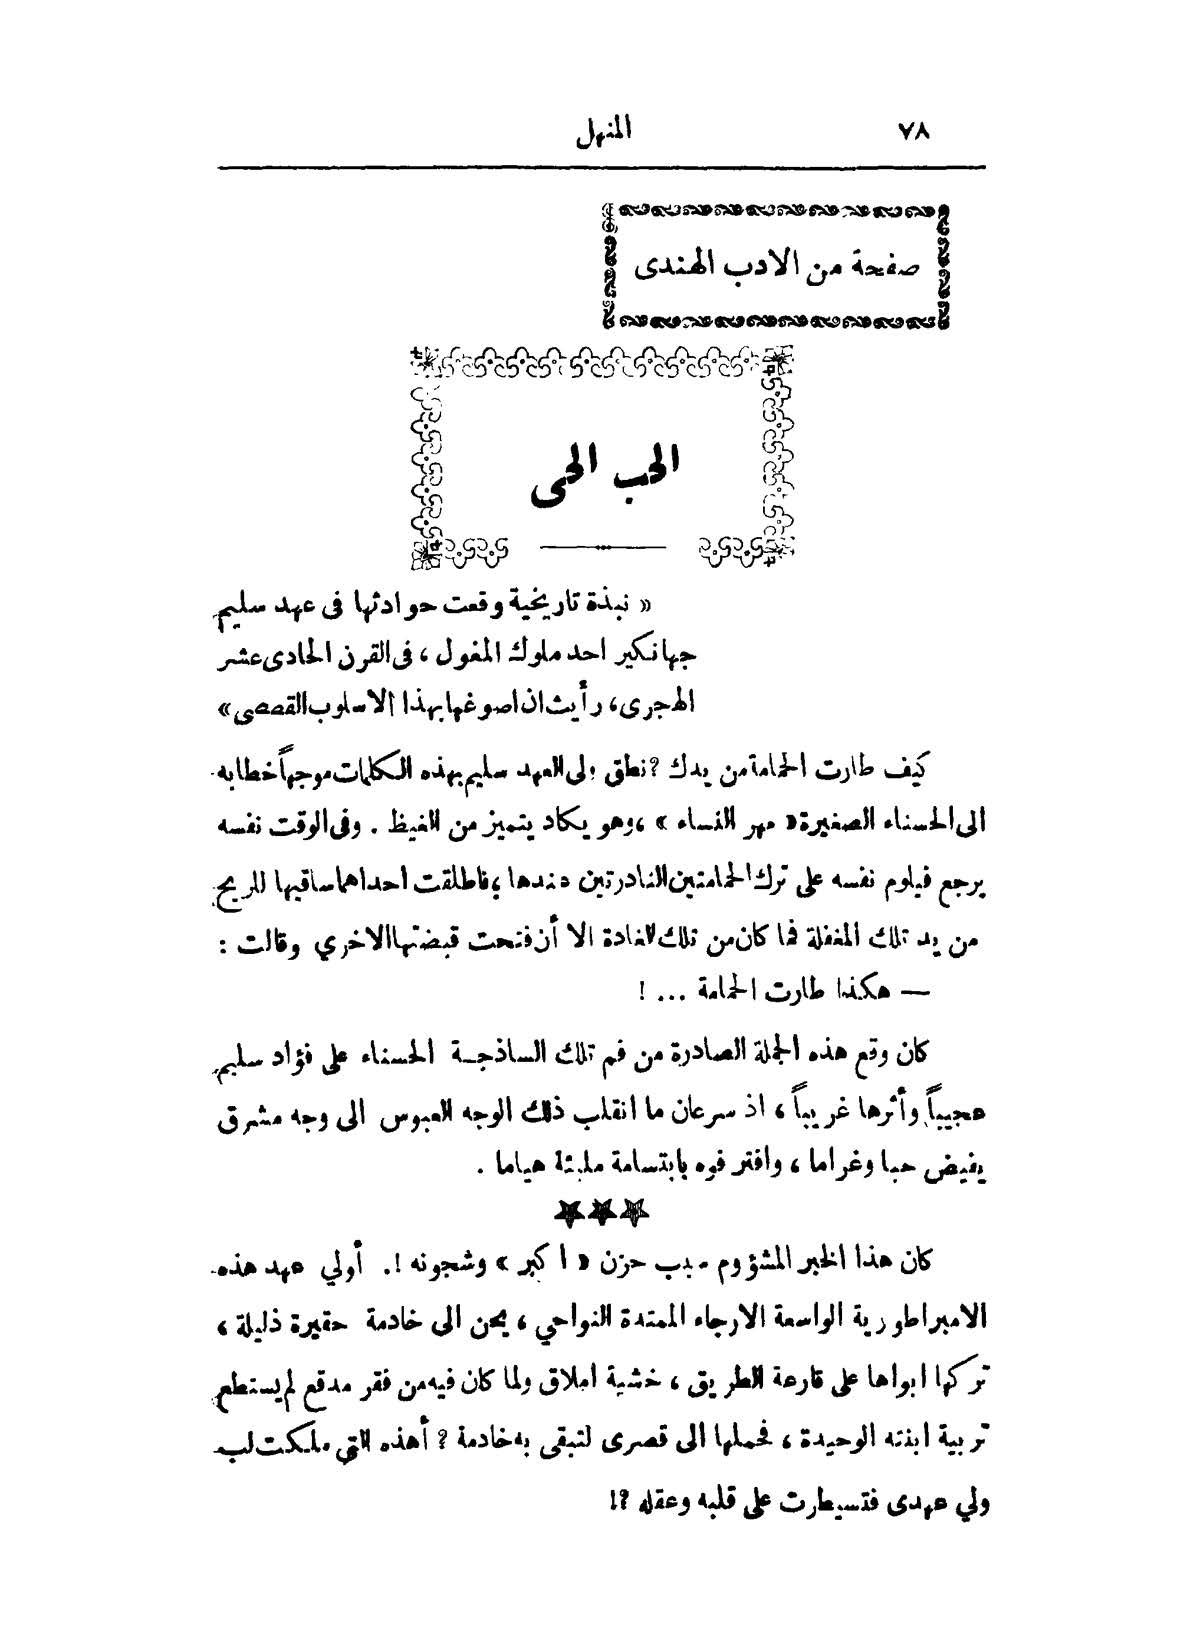 ٧٨
المنهل
صفحة من الادب الهندى
الحب الحى
« نبذة تاريخية وقعت حوادثها فى عهد سليم
جهانكير احد ملوك المغول ، فى القرن الحادى عشر
الهجرى، رأيت ان اصوغها بهذا الاسلوب القصصى »
كيف طارت الحمامة من يدك ؟ نطق ولى العهد سليم بهذه الكلمات موجهاً خطابه
الى الحسناء الصغيرة « مهر النساء » ، وهو يكاد يتميز من الغيظ . وفى الوقت نفسه
يرجع فيلوم نفسه على ترك الحمامتين النادرتين عندها ، فاطلقت احداهما ساقيها للريح
من يد تلك المغفلة فما كان من تلك الغادة الا أن فتحت قبضتها الاخري وقالت :
— هكذا طارت الحمامة ... !
كان وقع هذه الجملة الصادرة من فم تلك الساذجة الحسناء على فؤاد سليم
عجيباً وأثرها غريباً ، اذ سرعان ما انقلب ذلك الوجه العبوس الى وجه مشرق
يفيض حبا وغراما ، وافتر فوه بابتسامة مليئة هياما .
كان هذا الخبر المشؤوم سبب حزن « اكبر » وشجونه !. أولي عهد هذه
الامبراطورية الواسعة الارجاء الممتدة النواحي ، يحن الى خادمة حقيرة ذليلة ،
تركها ابواها على قارعة الطريق ، خشية املاق ولما كان فيه من فقر مدقع لم يستطع
تربية ابنته الوحيدة ، فحملها الى قصرى لتبقى به خادمة ؟ أهذه التي ملكت لب
ولي عهدى فتسيطرت على قلبه وعقله ؟!